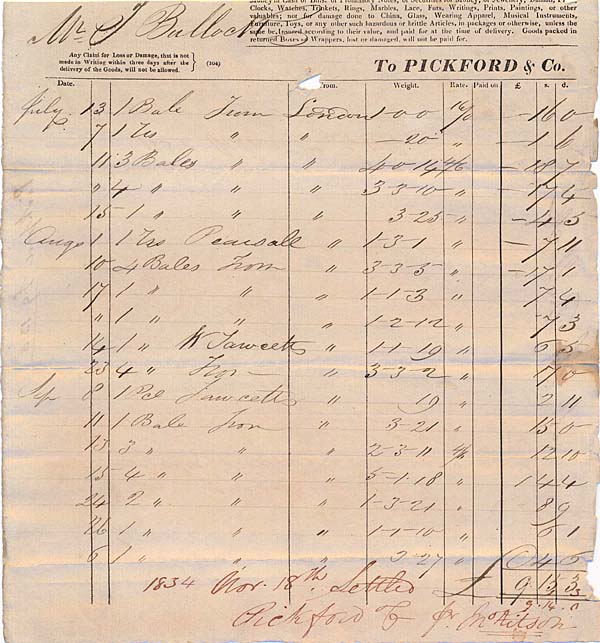 valuables; nor for damage done to China, Glass, Wearing Apparel, Musical Instruments,
Furniture, Toys, or any other such hazardous or brittle Articles, in packages or otherwise, unless the
same be Insured according to their value, and paid for at the time of delivery. Goods packed in
returned Boxes or Wrappers, lost or damaged, will not be paid for.
Mr Bullock
Any Claim for Loss or Damage, that is not
made in Writing within three days after the
delivery of the Goods, will not be allowed.
(104)
To PICKFORD & Co.
Date. From. Weight. Rate. Paid on £ s. d.
July 13 1 Bale From London 1-0-0 — 16 0
7 1 " " — 20 " — 1 6
11 3 Bales " " 4-0-14 4/6 — 18 7
" 4 " " " 3-3-10 " — 17 4
15 1 " " " 3-25 " — 4 3
Augs 1 1 Pearsall " 1-3-1 " — 7 11
10 4 Bales From " 3-3-5 " — 17 1
17 1 " " " 1-1-3 " 7 4
" 1 " " " 1-2-12 " 7 3
14 1 " W Fawcetts " 1-1-19 " 6 5
23 4 " " 3-3-2 " 17 0
Sep 8 1 Fawcetts " 19 " 2 11
11 1 Bale From " 3-21 " 15 0
13 3 " " " 2-3-11 4/6 12 10
15 4 " " " 5-1-18 " 1 4 4
24 2 " " " 1-3-21 " 8 9
26 1 " " " 1-1-10 " 6 1
6 1 " " " 3-27 " 4 6
1834 Nov. 18th Settled £ 9 13 3
9.14.0
Pickford & Co